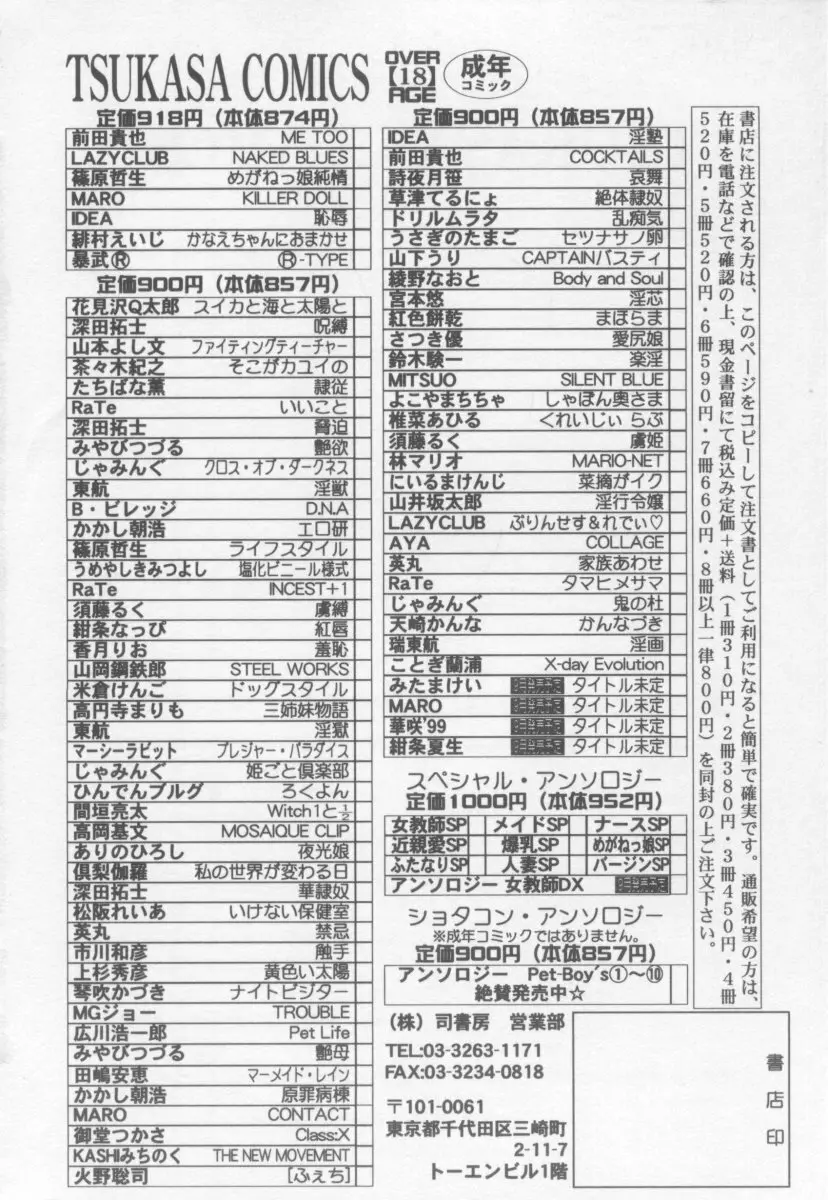 TSUKASA COMICS
OVER
【18】
AGE
成年
コミック
定価918円（本体874円）
前田貴也 ME TOO
LAZYCLUB NAKED BLUES
篠原哲生 めがねっ娘純情
MARO KILLER DOLL
IDEA 恥辱
緋村えいじ かなえちゃんにおまかせ
暴武Ⓡ Ⓡ-TYPE
定価900円（本体857円）
花見沢Q太郎 スイカと海と太陽と
深田拓士 呪縛
山本よし文 ファイティングティーチャー
茶々木紀之 そこがカユイの
たちばな薫 隷従
RaTe いいこと
深田拓士 脅迫
みやびつづる 艶欲
じゃみんぐ クロス・オブ・ダークネス
東航 淫獣
B・ビレッジ D.N.A
かかし朝浩 エロ研
篠原哲生 ライフスタイル
うめやしきみつよし 塩化ビニール様式
RaTe INCEST+1
須藤るく 虜縛
紺条なっぴ 紅唇
香月りお 羞恥
山岡鋼鉄郎 STEEL WORKS
米倉けんご ドッグスタイル
高円寺まりも 三姉妹物語
東航 淫獄
マーシーラビット プレジャー・パラダイス
じゃみんぐ 姫ごと倶楽部
ひんでんブルグ ろくよん
間垣亮太 Witch1と½
高岡基文 MOSAIQUE CLIP
ありのひろし 夜光娘
倶梨伽羅 私の世界が変わる日
深田拓士 華隷奴
松阪れいあ いけない保健室
英丸 禁忌
市川和彦 触手
上杉秀彦 黄色い太陽
琴吹かづき ナイトビジター
MGジョー TROUBLE
広川浩一郎 Pet Life
みやびつづる 艶母
田嶋安恵 マーメイド・レイン
かかし朝浩 原罪病棟
MARO CONTACT
御堂つかさ Class:X
KASHIみちのく THE NEW MOVEMENT
火野聡司 [ふぇち]
定価900円（本体857円）
IDEA 淫塾
前田貴也 COCKTAILS
詩夜月笹 哀舞
草津てるにょ 絶体隷奴
ドリルムラタ 乱痴気
うさぎのたまご セツナサノ卵
山下うり CAPTAINバスティ
綾野なおと Body and Soul
宮本悠 淫芯
紅色餅乾 まほらま
さつき優 愛尻娘
鈴木駿一 楽淫
MITSUO SILENT BLUE
よこやまちちゃ しゃぼん奥さま
椎菜あひる くれいじぃ らぶ
須藤るく 虜姫
林マリオ MARIO-NET
にいるまけんじ 菜摘がイク
山井坂太郎 淫行令嬢
LAZYCLUB ぷりんせす＆れでぃ♡
AYA COLLAGE
英丸 家族あわせ
RaTe タマヒメサマ
じゃみんぐ 鬼の杜
天崎かんな かんなづき
瑞東航 淫画
ことぎ蘭浦 X-day Evolution
みたまけい タイトル未定
MARO タイトル未定
華咲'99 タイトル未定
紺条夏生 タイトル未定
スペシャル・アンソロジー
定価1000円（本体952円）
女教師SP メイドSP ナースSP
近親愛SP 爆乳SP めがねっ娘SP
ふたなりSP 人妻SP バージンSP
アンソロジー 女教師DX
ショタコン・アンソロジー
※成年コミックではありません。
定価900円（本体857円）
アンソロジー Pet-Boy's①〜⑩
絶賛発売中☆
（株）司書房 営業部
TEL:03-3263-1171
FAX:03-3234-0818
〒101-0061
東京都千代田区三崎町
2-11-7
トーエンビル1階
書店に注文される方は、このページをコピーして注文書としてご利用になると簡単で確実です。通販希望の方は、
在庫を電話などで確認の上、現金書留にて税込み定価＋送料（1冊310円・2冊380円・3冊450円・4冊
520円・5冊520円・6冊590円・7冊660円・8冊以上一律800円）を同封の上ご注文下さい。
書店印